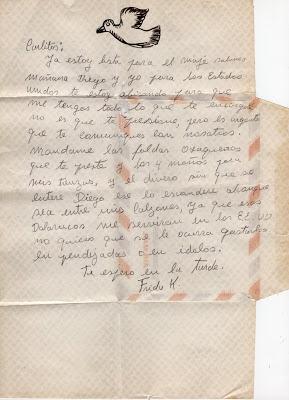 Carlitos:
Ya estoy lista para el viaje salimos
mañana Diego y yo para los Estados
Unidos te estoy abisando para que
me tengas todo lo que te encargue
no es que te presione, pero es urgente
que te comuniques con nosotros.
Mandame las faldas Oxaqueñas
que te preste y los 4 moños para
mis trenzas, y el dinero sin que se
entere Diego ese lo escondere ahunque
sea entre mis calzones, ya que esos
Dolarucos me serviran en los E.E. U.U
no quiero que se le ocurra gastarlos
en pendejadas o en idolos.
Te espero en la tarde.
Frida K.